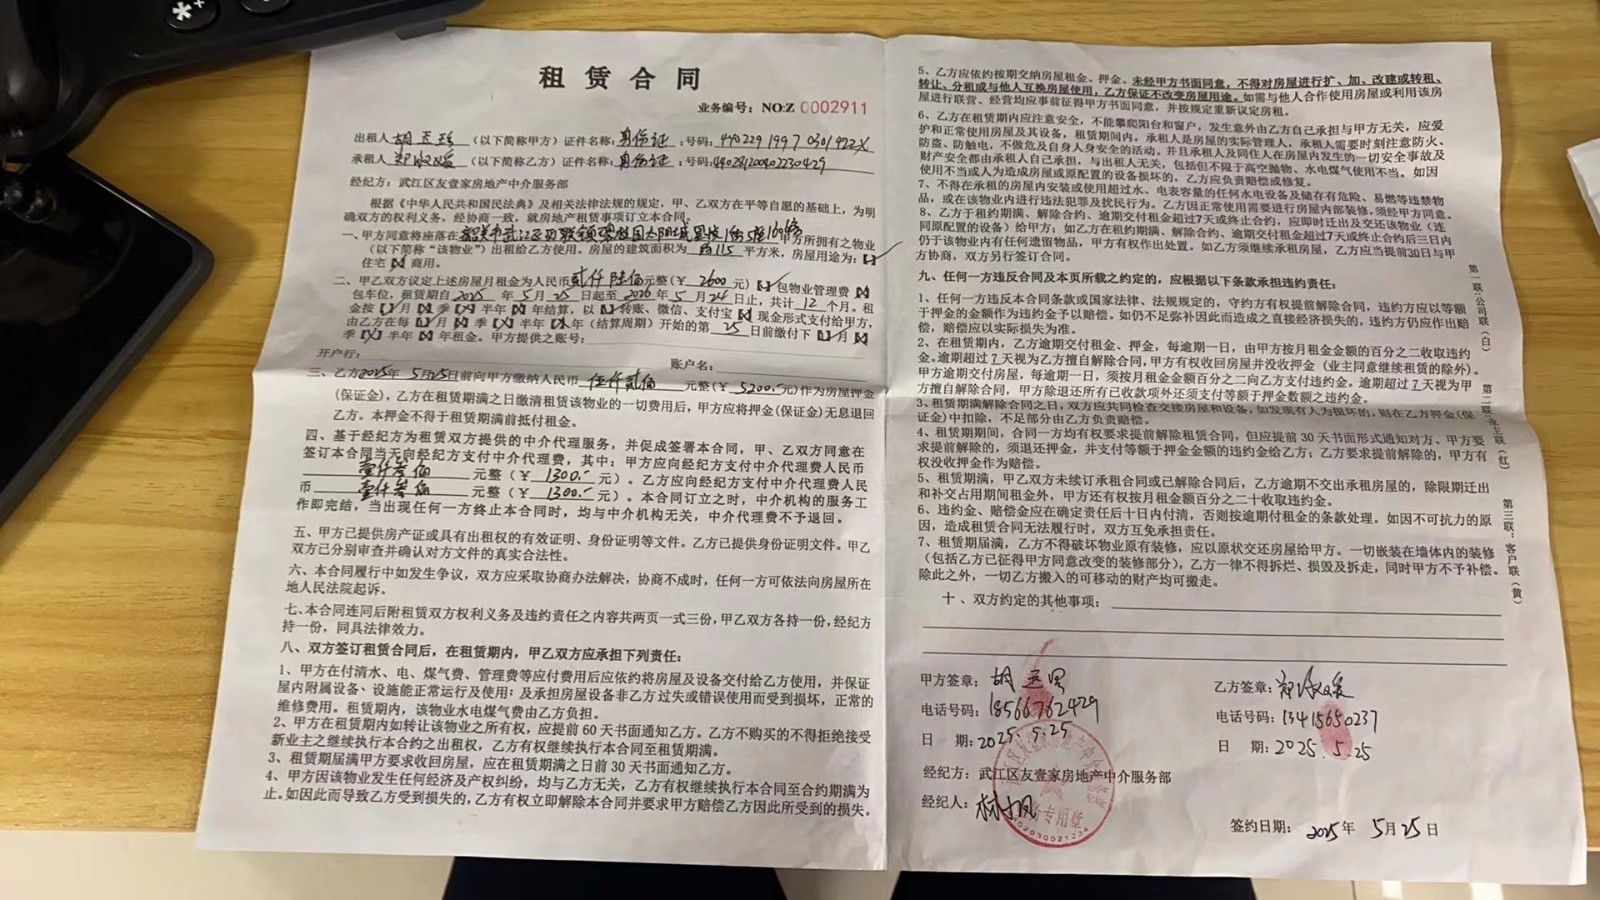 租赁合同
业务编号：NO:Z 0002911
出租人 胡 （以下简称甲方）证件名称：身份证：号码：
承租人 （以下简称乙方）证件名称：身份证：号码：
经纪方：武江区友壹家房地产中介服务部
根据《中华人民共和国民法典》及相关法律法规的规定，甲、乙双方在平等自愿的基础上，为明
确双方的权利义务，经协商一致，就房地产租赁事项订立本合同。
一、甲方同意将座落在 韶关市武江区西联镇碧桂园太阳城 甲方所拥有之物业
（以下简称“该物业”）出租给乙方使用。房屋的建筑面积为 约115 平方米，房屋用途为：【✓】
住宅【✗】商用。
二、甲乙双方议定上述房屋月租金为人民币 贰仟陆佰 元整（￥ 2600 元）【✓】包物业管理费【✗】
包车位，租赁期自 2025 年 5 月 25 日起至 2026 年 5 月 24 日止，共计 12 个月。租
金按【✓】月【✗】季【✗】半年【✗】年结算，以【✓】转账、微信、支付宝【✗】现金形式支付给甲方，
由乙方在每【✓】月【✗】季【✗】半年【✗】年（结算周期）开始的第 25 日前缴付下【✓】月【✗】
季【✗】半年【✗】年租金。甲方提供之账号：
开户行： 账户名：
三、乙方 2025年 5月25日前向甲方缴纳人民币 伍仟贰佰 元整（￥ 5200.- 元）作为房屋押金
（保证金），乙方在租赁期满之日缴清租赁该物业的一切费用后，甲方应将押金（保证金）无息退回
乙方。本押金不得于租赁期满前抵付租金。
四、基于经纪方为租赁双方提供的中介代理服务，并促成签署本合同，甲、乙双方同意在
签订本合同当天向经纪方支付中介代理费，其中：甲方应向经纪方支付中介代理费人民币
壹仟叁佰 元整（￥ 1300.- 元）。乙方应向经纪方支付中介代理费人民
币 壹仟叁佰 元整（￥ 1300.- 元）。本合同订立之时，中介机构的服务工
作即完结，当出现任何一方终止本合同时，均与中介机构无关，中介代理费不予退回。
五、甲方已提供房产证或具有出租权的有效证明、身份证等文件。乙方已提供身份证明文件。甲乙
双方已分别审查并确认对方文件的真实合法性。
六、本合同履行中如发生争议，双方应采取协商办法解决，协商不成时，任何一方可依法向房屋所在
地人民法院起诉。
七、本合同连同后附租赁双方权利义务及违约责任之内容共两页一式三份，甲乙双方各持一份，经纪方
持一份，同具法律效力。
八、双方签订租赁合同后，在租赁期内，甲乙双方应承担下列责任：
1、甲方在付清水、电、煤气费、管理费等应付费用后应依约将房屋及设备交付给乙方使用，并保证
屋内附属设备、设施能正常运行及使用；及承担房屋设备非乙方过失或错误使用而受到损坏，正常的
维修费用。租赁期内，该物业水电煤气费由乙方负担。
2、甲方在租赁期内如转让该物业之所有权，应提前60天书面通知乙方。乙方不购买的不得拒绝接受
新业主之继续执行本合约之出租权，乙方有权继续执行本合同至租赁期满。
3、租赁期届满甲方要求收回房屋，应在租赁期满之日前30天书面通知乙方。
4、甲方因该物业发生任何经济及产权纠纷，均与乙方无关，乙方有权继续执行本合同至合约期满为
止。如因此而导致乙方受到损失的，乙方有权立即解除本合同并要求甲方赔偿乙方因此所受到的损失。
5、乙方应依约按期交纳房屋租金、押金。未经甲方书面同意，不得对房屋进行扩、加、改建或转租、
转让、分租或与他人互换房屋使用，乙方保证不改变房屋用途。如需与他人合作使用房屋或利用该房
屋进行联营、经营均应事前征得甲方书面同意，并按规定重新议定房租。
6、乙方在租赁期内应注意安全，不能攀爬阳台和窗户，发生意外由乙方自己承担与甲方无关，应爱
护和正常使用房屋及其设备，租赁期间内，承租人是房屋的实际管理人，承租人需要时刻注意防火、
防盗、防触电，不做危及自身人身安全的活动。并且承租人及同住人在房屋内发生的一切安全事故及
财产安全都由承租人自己承担，与出租人无关，包括但不限于高空抛物、水电煤气使用不当。如因
使用不当或人为造成房屋或原配置的设备损坏的，乙方应负责赔偿或修复。
7、不得在承租的房屋内安装或使用超过水、电表容量的任何水电设备及储存有危险、易燃等违禁物
品，或在该物业内进行违法犯罪及扰民行为。乙方因正常使用需要进行房屋内部装修，须经甲方同意。
8、乙方于租约期满、解除合约、逾期交付租金超过7天或终止合约，应即时迁出及交还该物业（连
同原配置的设备）给甲方；如乙方在租约期满、解除合约、逾期交付租金超过7天或终止合约后三日内
仍于该物业内有任何遗留物品，甲方有权作出处置。如乙方须继续承租房屋，乙方应当提前30日与甲
方协商，双方另行签订合同。
九、任何一方违反合同及本页所载之约定的，应根据以下条款承担违约责任：
1、任何一方违反本合同条款或国家法律、法规规定的，守约方有权提前解除合同，违约方应以等额
于押金的金额作为违约金予以赔偿。如仍不足弥补因此而造成之直接经济损失的，违约方仍应作出赔
偿，赔偿应以实际损失为准。
2、在租赁期内，乙方逾期交付租金、押金，每逾期一日，由甲方按月租金金额的百分之二收取违约
金。逾期超过7天视为乙方擅自解除合同，甲方有权收回房屋并没收押金（业主同意继续租赁的除外）。
甲方逾期交付房屋，每逾期一日，须按月租金金额百分之二向乙方支付违约金。逾期超过7天视为甲
方擅自解除合同，甲方除退还所有已收款项外还须支付等额于押金数额之违约金。
3、租赁期满解除合同之日，双方应共同检查交接房屋和设备，如发现有人为损坏的，则在乙方押金（保
证金）中扣除，不足部分由乙方负责赔偿。
4、租赁期期间，合同一方均有权要求提前解除租赁合同，但应提前30天书面形式通知对方。甲方要
求提前解除的，须退还押金，并支付等额于押金金额的违约金给乙方；乙方要求提前解除的，甲方有
权没收押金作为赔偿。
5、租赁期满，甲乙双方未续订承租合同或已解除合同后，乙方逾期不交出承租房屋的，除限期迁出
和补交占用期间租金外，甲方还有权按月租金额百分之二十收取违约金。
6、违约金、赔偿金应在确定责任后十日内付清，否则按逾期付租金的条款处理。如因不可抗力的原
因，造成租赁合同无法履行时，双方互免承担责任。
7、租赁期届满，乙方不得破坏物业原有装修，应以原状交还房屋给甲方。一切嵌装在墙体内的装修
（包括乙方已征得甲方同意改变的装修部分），乙方一律不得拆烂、损毁及拆走，同时甲方不予补偿。
除此之外，一切乙方搬入的可移动的财产均可搬走。
十、双方约定的其他事项：
甲方签章：胡
电话号码：18566762429
日 期：2025.5.25
经纪方：武江区友壹家房地产中介服务部
经纪人：
乙方签章：
电话号码：13415650237
日 期：2025.5.25
签约日期： 2025年 5月25日
第一联：公司联（白）
第二联：业主联（红）
第三联：客户联（黄）